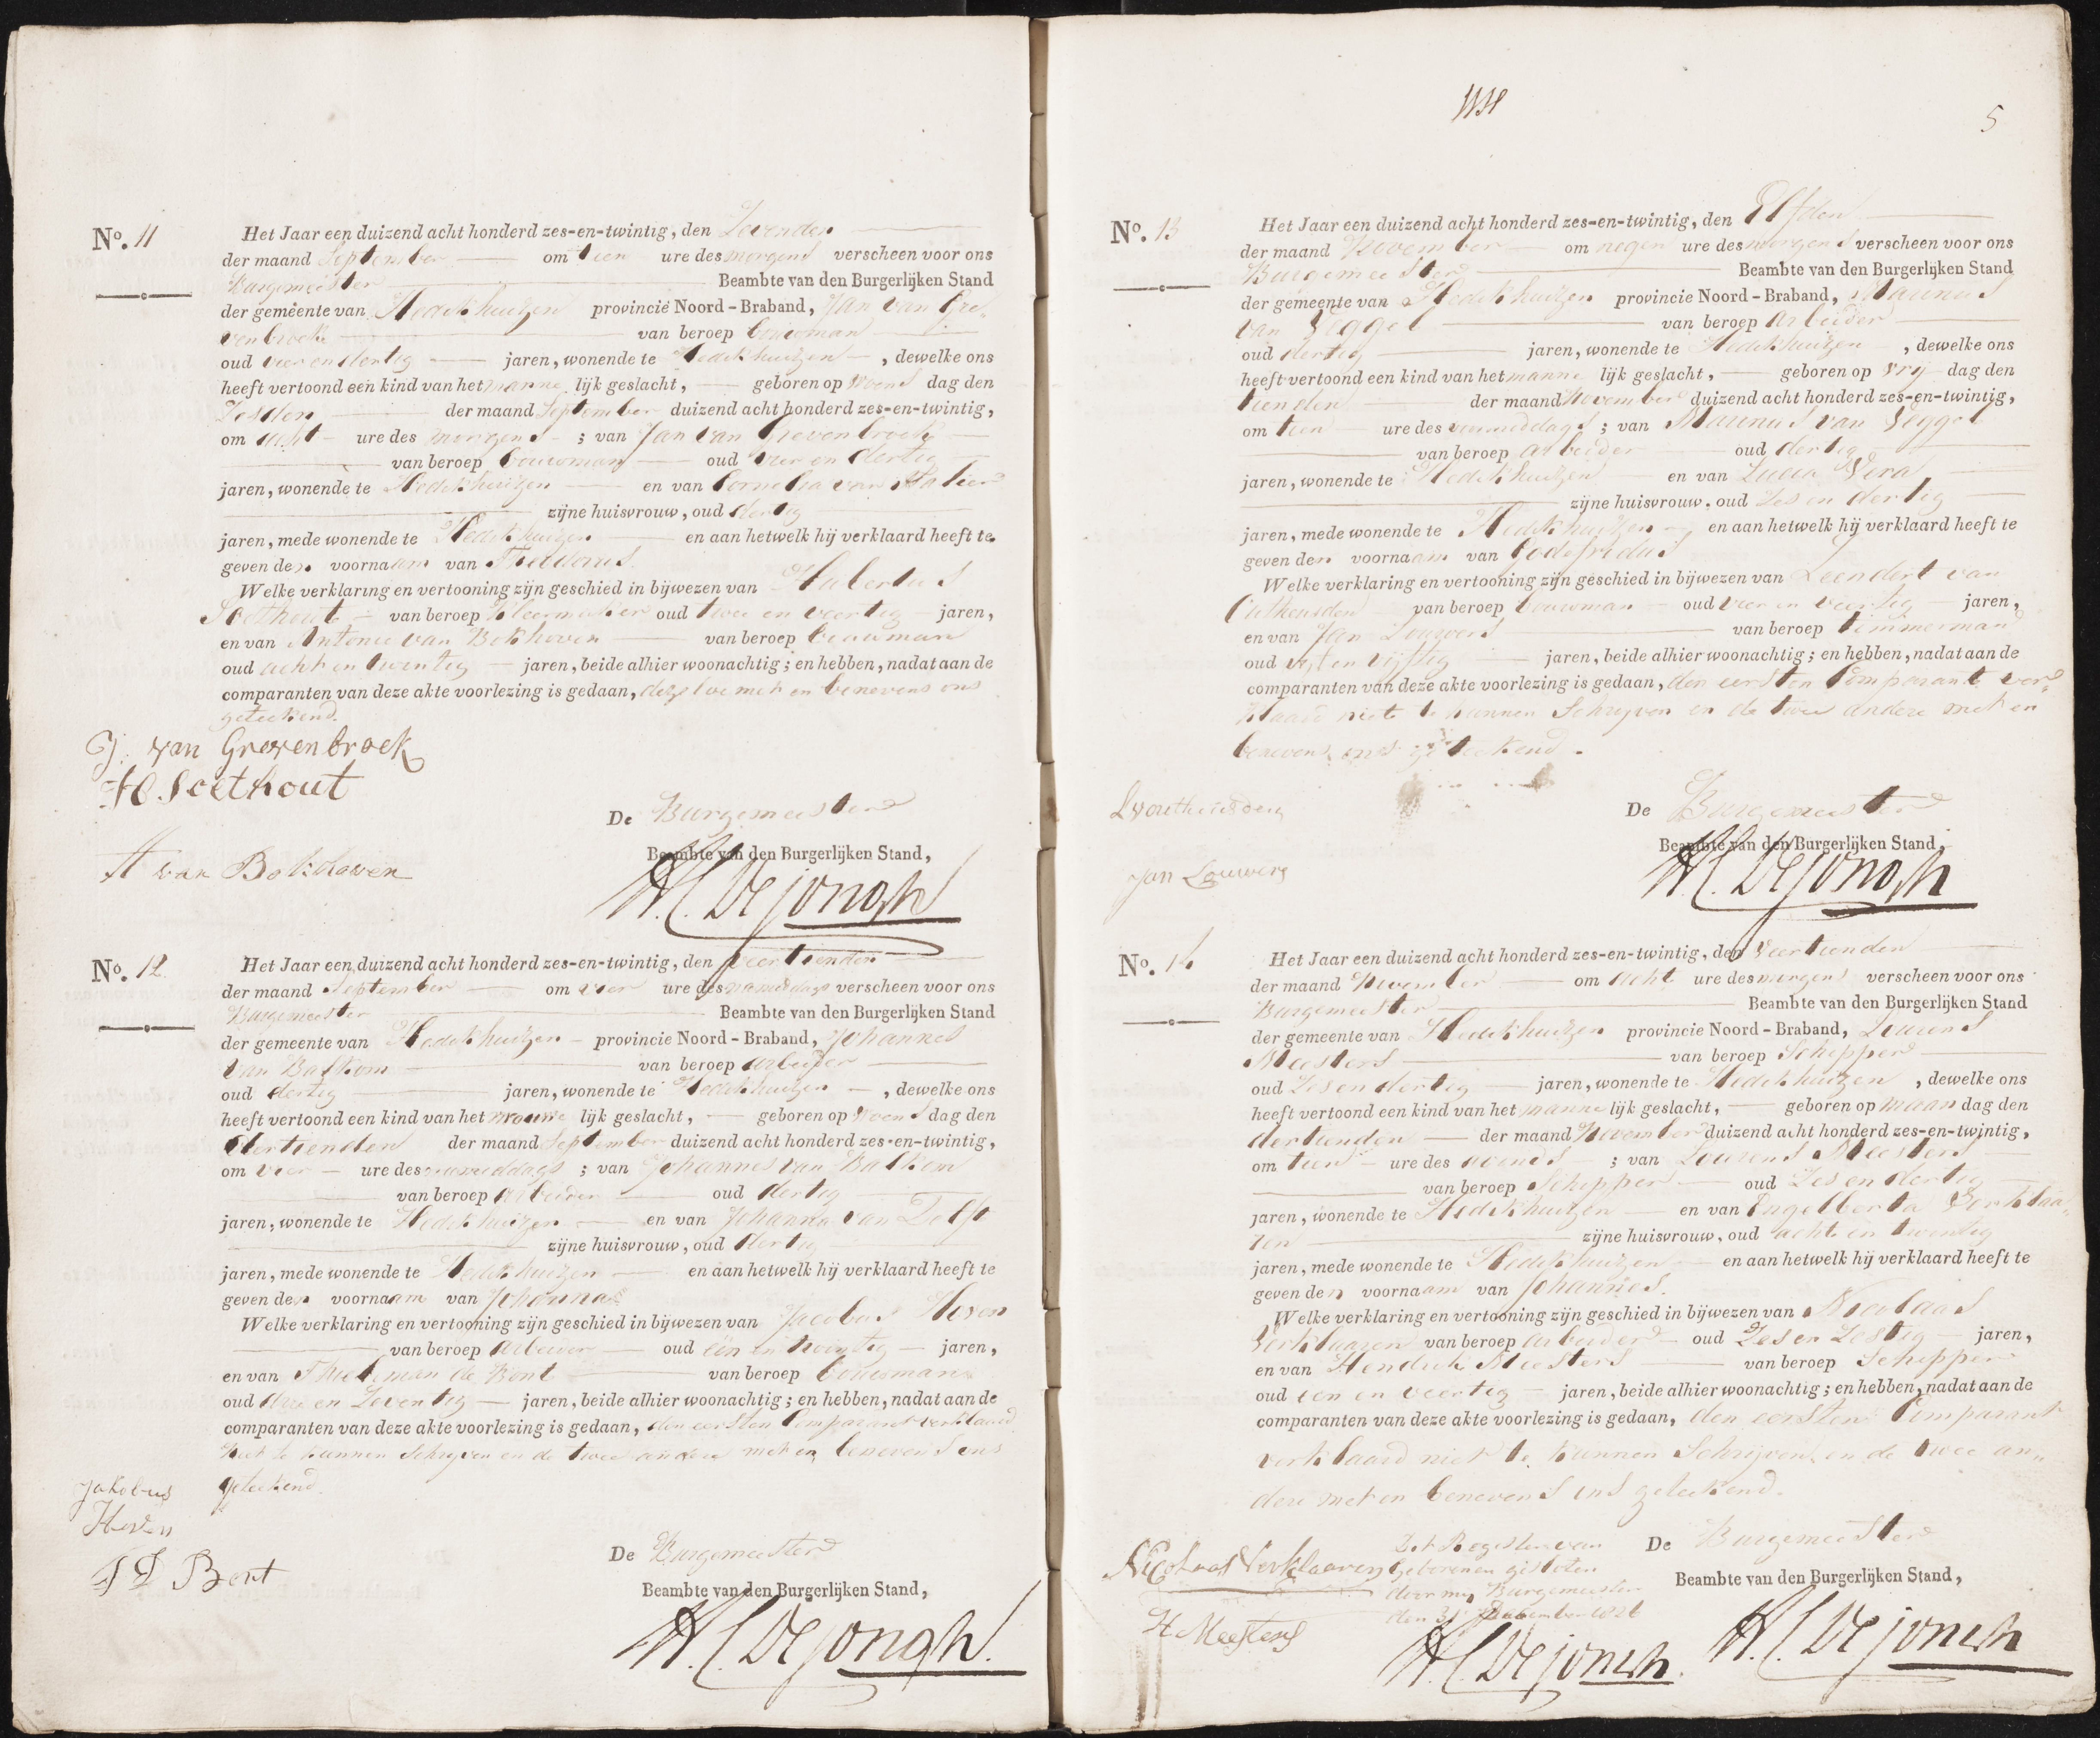 No. 11
Het Jaar een duizend acht honderd zes-en-twintig, den Zevenden
der maand September om tien ure des morgens verscheen voor ons
Burgemeester Beambte van den Burgerlijken Stand
der gemeente van Hedikhuizen provincie Noord-Braband, Jan van Gre-
venbroek van beroep bouwman
oud vier en dertig jaren, wonende te Hedikhuizen, dewelke ons
heeft vertoond een kind van het mannelijk geslacht, geboren op woensdag den
Zesden der maand September duizend acht honderd zes-en-twintig,
om acht ure des morgens; van Jan van Grevenbroek
van beroep bouwman oud vier en dertig
jaren, wonende te Hedikhuizen en van Cornelia van
zijne huisvrouw, oud dertig
jaren, mede wonende te Hedikhuizen en aan hetwelk hij verklaard heeft te
geven den voornaam van Theodorus.
Welke verklaring en vertooning zijn geschied in bijwezen van Hubertus
Soethout van beroep Kleermaker oud twee en veertig jaren,
en van Antonie van Bokhoven van beroep bouwman
oud acht en twintig jaren, beide alhier woonachtig; en hebben, nadat aan de
comparanten van deze akte voorlezing is gedaan, deze met en benevens ons
geteekend.
J. van Grevenbroek
H Soethout
A van Bokhoven
De Burgemeester
Beambte van den Burgerlijken Stand,
H.C. De jongh
No. 12
Het Jaar een duizend acht honderd zes-en-twintig, den veertienden
der maand September om vier ure des namiddags verscheen voor ons
Burgemeester Beambte van den Burgerlijken Stand
der gemeente van Hedikhuizen provincie Noord-Braband, Johannes
van Balkom van beroep arbeider
oud dertig jaren, wonende te Hedikhuizen, dewelke ons
heeft vertoond een kind van het vrouwelijk geslacht, geboren op woensdag den
dertienden der maand September duizend acht honderd zes-en-twintig,
om vier ure des namiddags; van Johannes van Balkom
van beroep arbeider oud dertig
jaren, wonende te Hedikhuizen en van Johanna van Delft
zijne huisvrouw, oud dertig
jaren, mede wonende te Hedikhuizen en aan hetwelk hij verklaard heeft te
geven den voornaam van Johanna
Welke verklaring en vertooning zijn geschied in bijwezen van Jacobus Heven
van beroep arbeider oud één en jaren,
en van Thieleman de Bont van beroep bouwman
oud drie en Zeventig jaren, beide alhier woonachtig; en hebben, nadat aan de
comparanten van deze akte voorlezing is gedaan, den eersten Comparant verklaard
niet te kunnen Schrijven en de twee andere met en benevens ons
geteekend.
Jakobus
Heven
T D Bont
De Burgemeester
Beambte van den Burgerlijken Stand,
H.C. De jongh.
5
No. 13
Het Jaar een duizend acht honderd zes-en-twintig, den Elfden
der maand November om negen ure des morgens verscheen voor ons
Burgemeester Beambte van den Burgerlijken Stand
der gemeente van Hedikhuizen provincie Noord-Braband, Marinus
van Veggel van beroep Arbeider
oud dertig jaren, wonende te Hedikhuizen, dewelke ons
heeft vertoond een kind van het mannelijk geslacht, geboren op vrydag den
tienden der maand November duizend acht honderd zes-en-twintig,
om tien ure des voormiddags; van Marinus van Veggel
van beroep arbeider oud dertig
jaren, wonende te Hedikhuizen en van Lucia Vera
zijne huisvrouw, oud Zes en dertig
jaren, mede wonende te Hedikhuizen en aan hetwelk hij verklaard heeft te
geven den voornaam van Godefridus
Welke verklaring en vertooning zijn geschied in bijwezen van Leendert van
Outheusden van beroep bouwman oud vier en veertig jaren,
en van Jan Louwers van beroep timmerman
oud vyf en vyftig jaren, beide alhier woonachtig; en hebben, nadat aan de
comparanten van deze akte voorlezing is gedaan, den eersten Comparant ver-
klaard niet te kunnen Schryven en de twee andere met en
benevens ons geteekend.
L v outheusden
Jan Louwers
De Burgemeester
Beambte van den Burgerlijken Stand,
H.C. De jongh
No. 14
Het Jaar een duizend acht honderd zes-en-twintig, den veertienden
der maand November om acht ure des morgens verscheen voor ons
Burgemeester Beambte van den Burgerlijken Stand
der gemeente van Hedikhuizen provincie Noord-Braband, Lourens
Meesters van beroep Schipper
oud Zes en dertig jaren, wonende te Hedikhuizen, dewelke ons
heeft vertoond een kind van het mannelijk geslacht, geboren op maandag den
dertienden der maand November duizend acht honderd zes-en-twintig,
om tien ure des avonds; van Lourens Meesters
van beroep Schipper oud Zes en dertig
jaren, wonende te Hedikhuizen en van Engelberta Verklaa-
ren zijne huisvrouw, oud acht en twintig
jaren, mede wonende te Hedikhuizen en aan hetwelk hij verklaard heeft te
geven den voornaam van Johannes.
Welke verklaring en vertooning zijn geschied in bijwezen van Nicolaas
Verklaaren van beroep arbeider oud Zes en Zestig jaren,
en van Hendrik Meesters van beroep Schipper
oud een en veertig jaren, beide alhier woonachtig; en hebben, nadat aan de
comparanten van deze akte voorlezing is gedaan, den eersten Comparant
verklaard niet te kunnen Schrijven en de twee an-
dere met en benevens ons geteekend.
Nicolaas Verklaaren
H Meesters
Dit Register van
Geborenen gesloten
door my Burgemeester
den 31 December 1826
H.C. De jongh.
De Burgemeester
Beambte van den Burgerlijken Stand,
H.C. De jongh